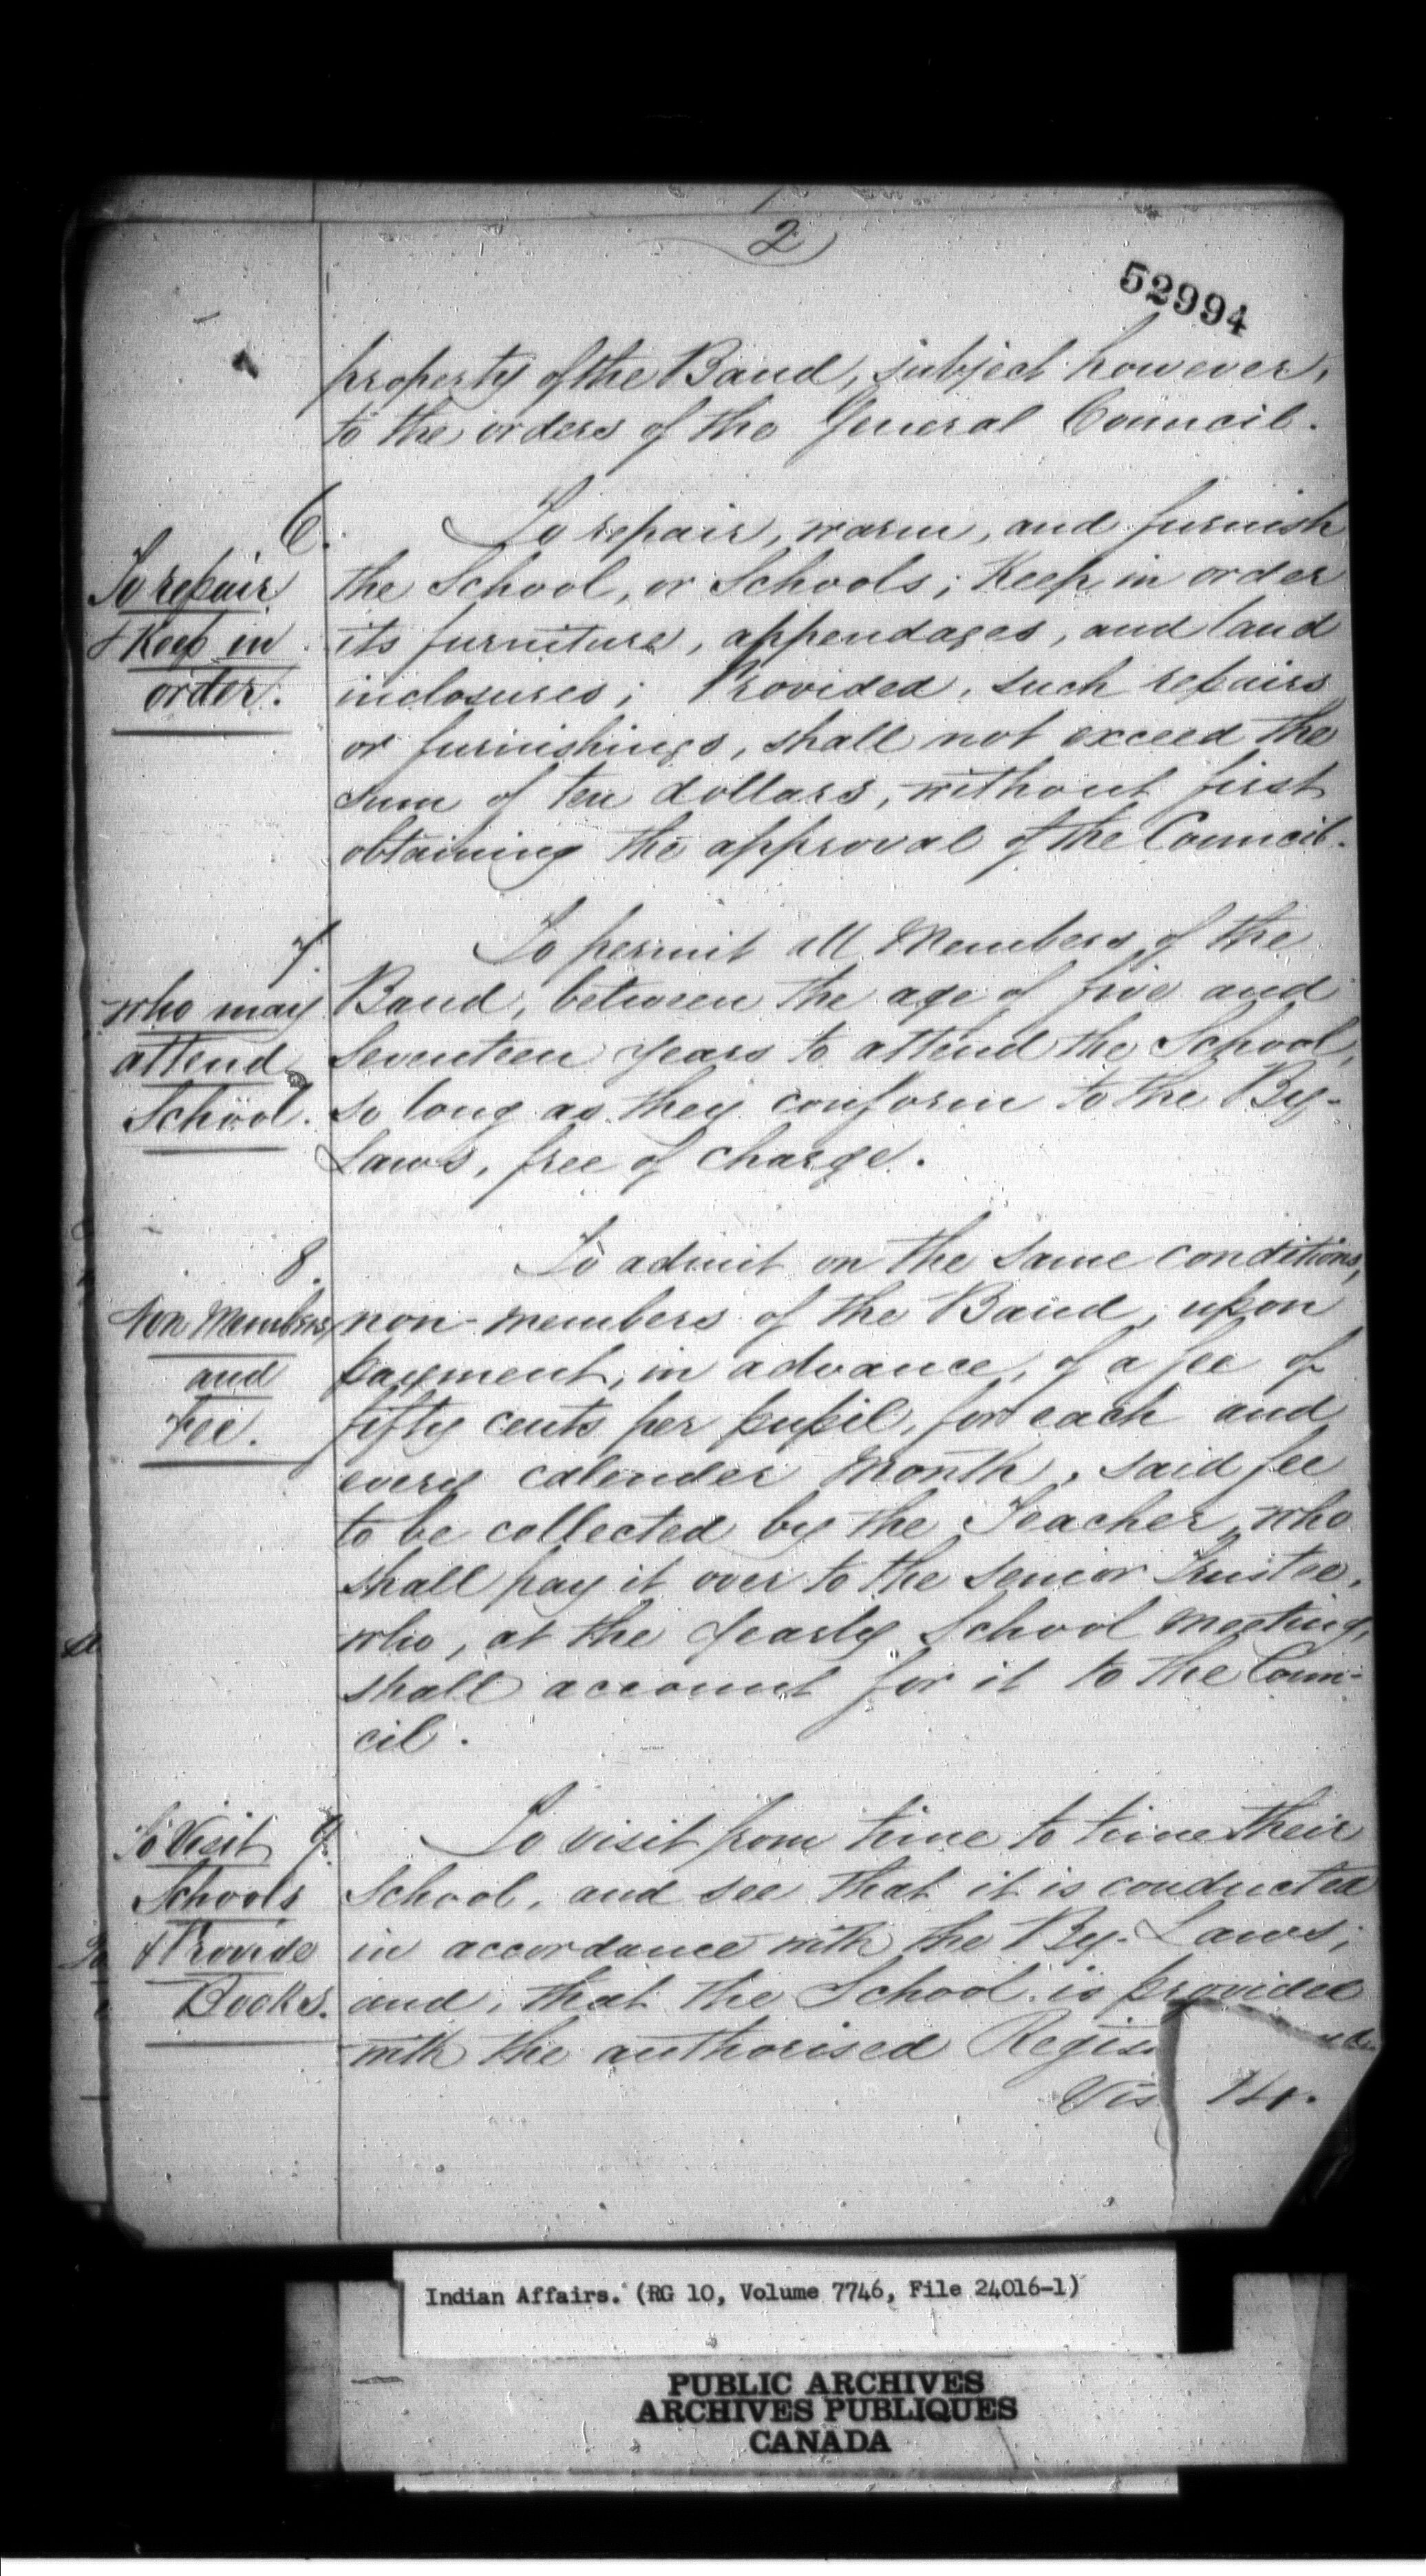 2
52994
property of the Band, subject however,
to the orders of the General Council.
6.
To repair
& Keep in
order.
To repair, warm, and furnish
the School, or Schools; Keep in order
its furniture, appendages, and land
inclosures; Provided, such repairs
or furnishings, shall not exceed the
sum of ten dollars, without first
obtaining the approval of the Council.
7.
who may
attend
School.
To permit all Members of the
Band, between the age of five and
Seventeen years to attend the School,
so long as they conform to the By-
Laws, free of charge.
8.
Non Members
and
Fee.
To admit on the same conditions,
non-members of the Band, upon
payment, in advance, of a fee of
fifty cents per pupil, for each and
every calender Month, said fee
to be collected by the Teacher, who
shall pay it over to the Senior Trustee,
who, at the yearly School meeting,
shall account for it to the Coun-
cil.
9.
To Visit
Schools
& Provide
Books.
To visit from time to time their
School, and see that it is conducted
in accordance with the By-Laws;
and, that the School is provided
with the authorised Regis
Vis
Indian Affairs. (RG 10, Volume 7746, File 24016-1)
PUBLIC ARCHIVES
ARCHIVES PUBLIQUES
CANADA